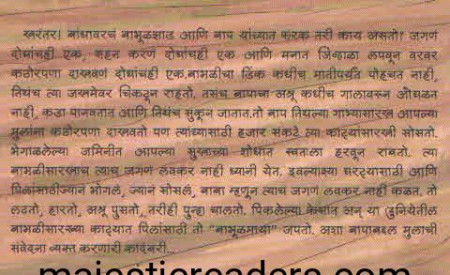 खरंतर! बांधावरचं बाभूळझाड आणि बाप यांच्यात फरक तरी काय असतो? जगणं
दोघांचंही एक, सहन करणं दोघांचंही एक आणि मनात जिव्हाळा लपवून वरवर
कठोरपणा दाखवणं दोघांचंही एक.बाभळीचा डिंक कधीच मातीपर्यंत पोहचत नाही,
तिथंच त्या जखमेवर चिकटून राहतो. तसंच बापाचा अश्रू कधीच गालावरून ओघळत
नाही, कडा पानवतात आणि तिथंच सुकून जातात.तो बाप तिथल्या गाभ्यासारखा आपल्या
मुलांना कठोरपणा दाखवतो पण त्यांच्यासाठी हजार संकटे त्या काट्यांसारखी सोसतो.
भेगाळलेल्या जमिनीत आपल्या सुखाच्या शोधात स्वतःला हरवून राबतो. त्या
बाभळीसारखाच त्याच जगणं लवकर नाही ध्यानी येत. इवल्याश्या घरट्यासाठी आणि
पिलांसाठीज्यानं भोगलं, ज्यानं सोसलं, बाबा म्हणून त्याच जगणं लवकर नाही कळत. तो
लढतो, हारतो, अश्रू पुसतो, तरीही पुन्हा चालतो. पिकलेल्या केसात अन् या दुनियेतील
बाभळीसारख्या काट्यात पिलांसाठी तो "बाभूळमाया" जपतो. अशा बापाबद्दल मुलाची
संवेदना व्यक्त करणारी कादंबरी...
majesticreaders.com